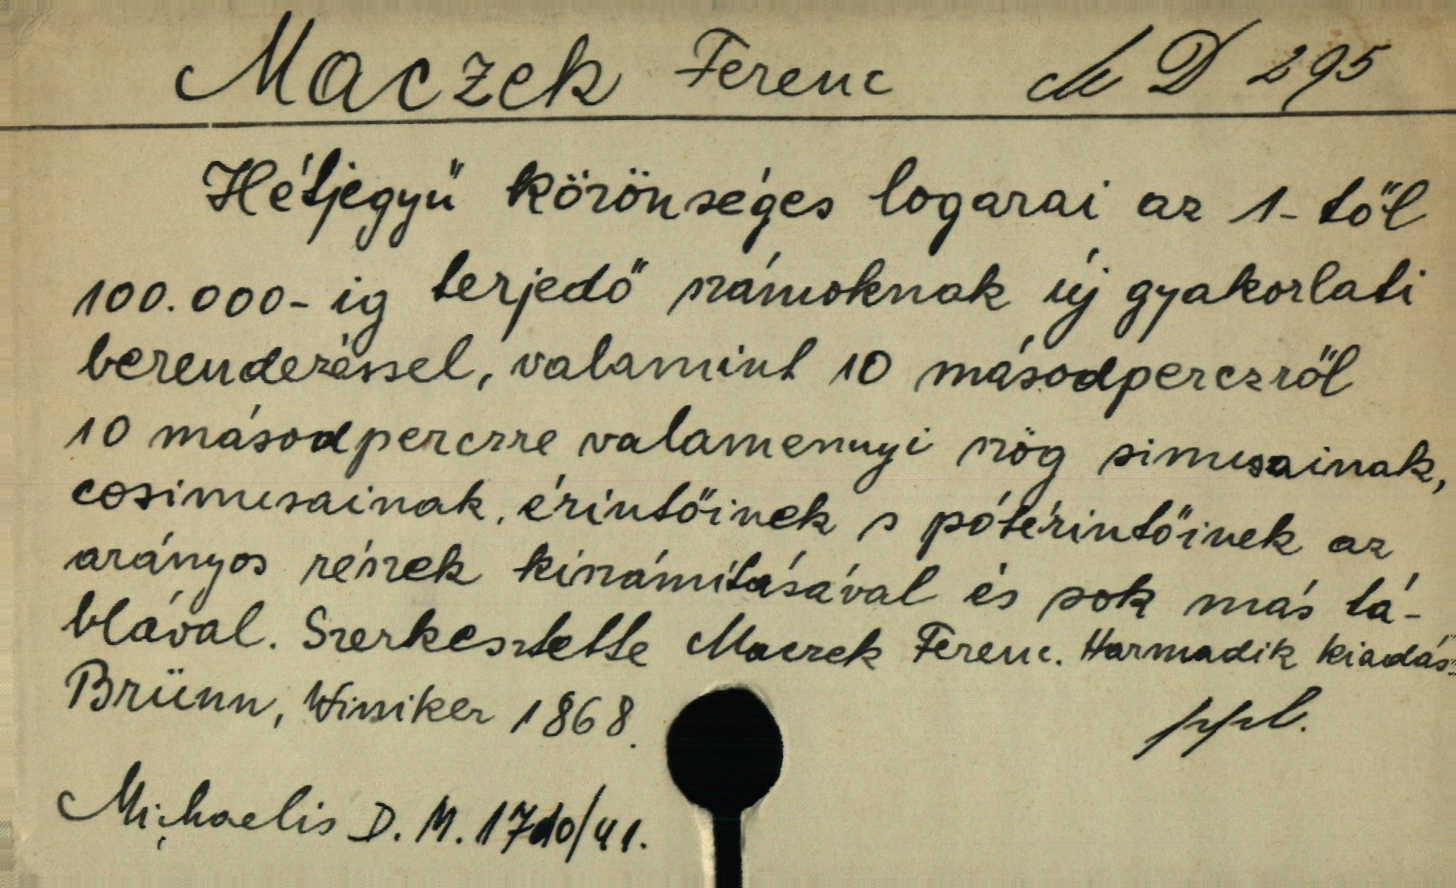 Maczek Ferenc M D 295
Hétjegyű közönséges logarai az 1-től
100.000-ig terjedő számoknak új gyakorlati
berendezéssel, valamint 10 másodperczről
10 másodperczre valamennyi szög sinusainak,
cosinusainak, érintőinek s pótérintőinek az
arányos részek kiszámításával és sok más tá-
blával. Szerkesztette Maczek Ferenc. Harmadik kiadás.
Brünn, Winiker 1868.
ppl.
Michaelis D. M. 17 /41.